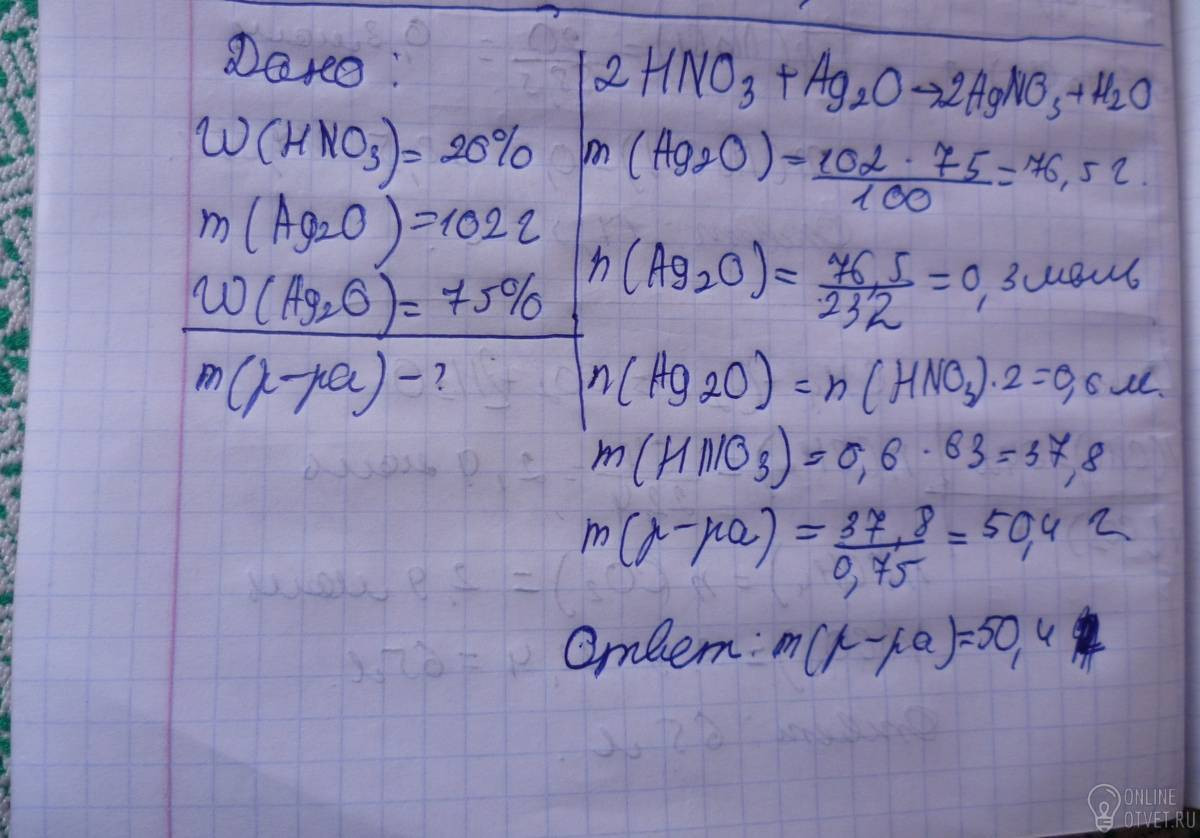 Дано:
W(HNO3) = 20%
m(Ag2O) = 102 г
W(Ag2O) = 75%
m(р-ра) - ?
2HNO3 + Ag2O → 2AgNO3 + H2O
m(Ag2O) = 102 · 75 / 100 = 76,5 г.
n(Ag2O) = 76,5 / 232 = 0,3 моль
n(Ag2O) = n(HNO3) · 2 = 0,6 м.
m(HNO3) = 0,6 · 63 = 37,8
m(р-ра) = 37,8 / 0,75 = 50,4 г
Ответ: m(р-ра) = 50,4
ONLINE
OTVET.RU